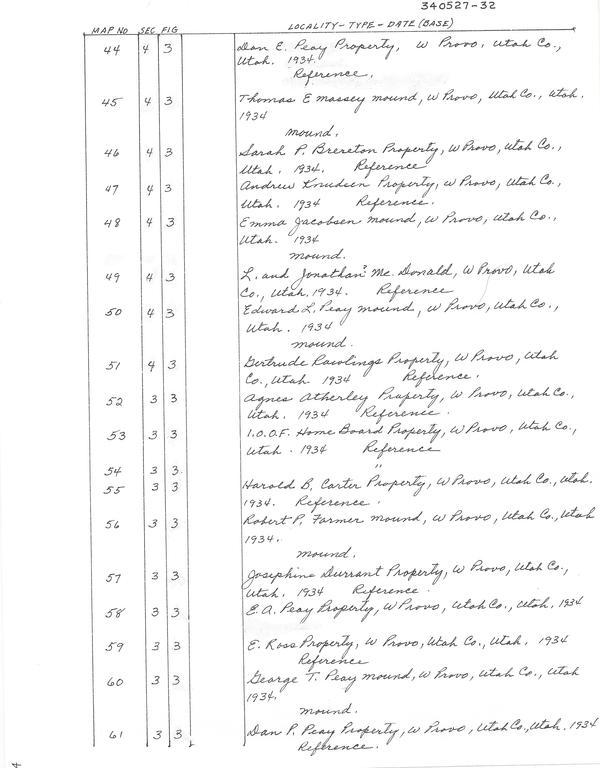 340527-32
MAP NO SEC FIG LOCALITY - TYPE - DATE (BASE)
44 4 3 Dan E. Peay Property, W Provo, Utah Co.,
Utah. 1934.
Reference.
45 4 3 Thomas E Massey mound, W Provo, Utah Co., Utah.
1934
mound.
46 4 3 Sarah P. Brereton Property, W Provo, Utah Co.,
Utah. 1934. Reference
47 4 3 Andrew Knudsen Property, W Provo, Utah Co.,
Utah. 1934 Reference.
48 4 3 Emma Jacobsen mound, W Provo, Utah Co.,
Utah. 1934
mound.
49 4 3 L. and Jonathan? Mc. Donald, W Provo, Utah
Co., Utah. 1934. Reference
50 4 3 Edward L. Peay mound, W Provo, Utah Co.,
Utah. 1934
mound.
51 4 3 Gertrude Rawlings Property, W Provo, Utah
Co., Utah 1934 Reference.
52 3 3 Agnes Atherley Property, W Provo, Utah Co.,
Utah. 1934 Reference.
53 3 3 I.O.O.F. Home Board Property, W Provo, Utah Co.,
Utah. 1934 Reference
54 3 3. "
55 3 3 Harold B. Carter Property, W Provo, Utah Co., Utah.
1934. Reference.
56 3 3 Robert P. Farmer mound, W Provo, Utah Co., Utah
1934.
mound.
57 3 3 Josephine Durrant Property, W Provo, Utah Co.,
Utah. 1934 Reference.
58 3 3 E.A. Peay Property, W Provo, Utah Co., Utah. 1934
59 3 3 E. Ross Property, W Provo, Utah Co., Utah. 1934
Reference
60 3 3 George T. Peay mound, W Provo, Utah Co., Utah
1934.
mound.
61 3 3 Dan P. Peay Property, W Provo, Utah Co., Utah. 1934
Reference.
4